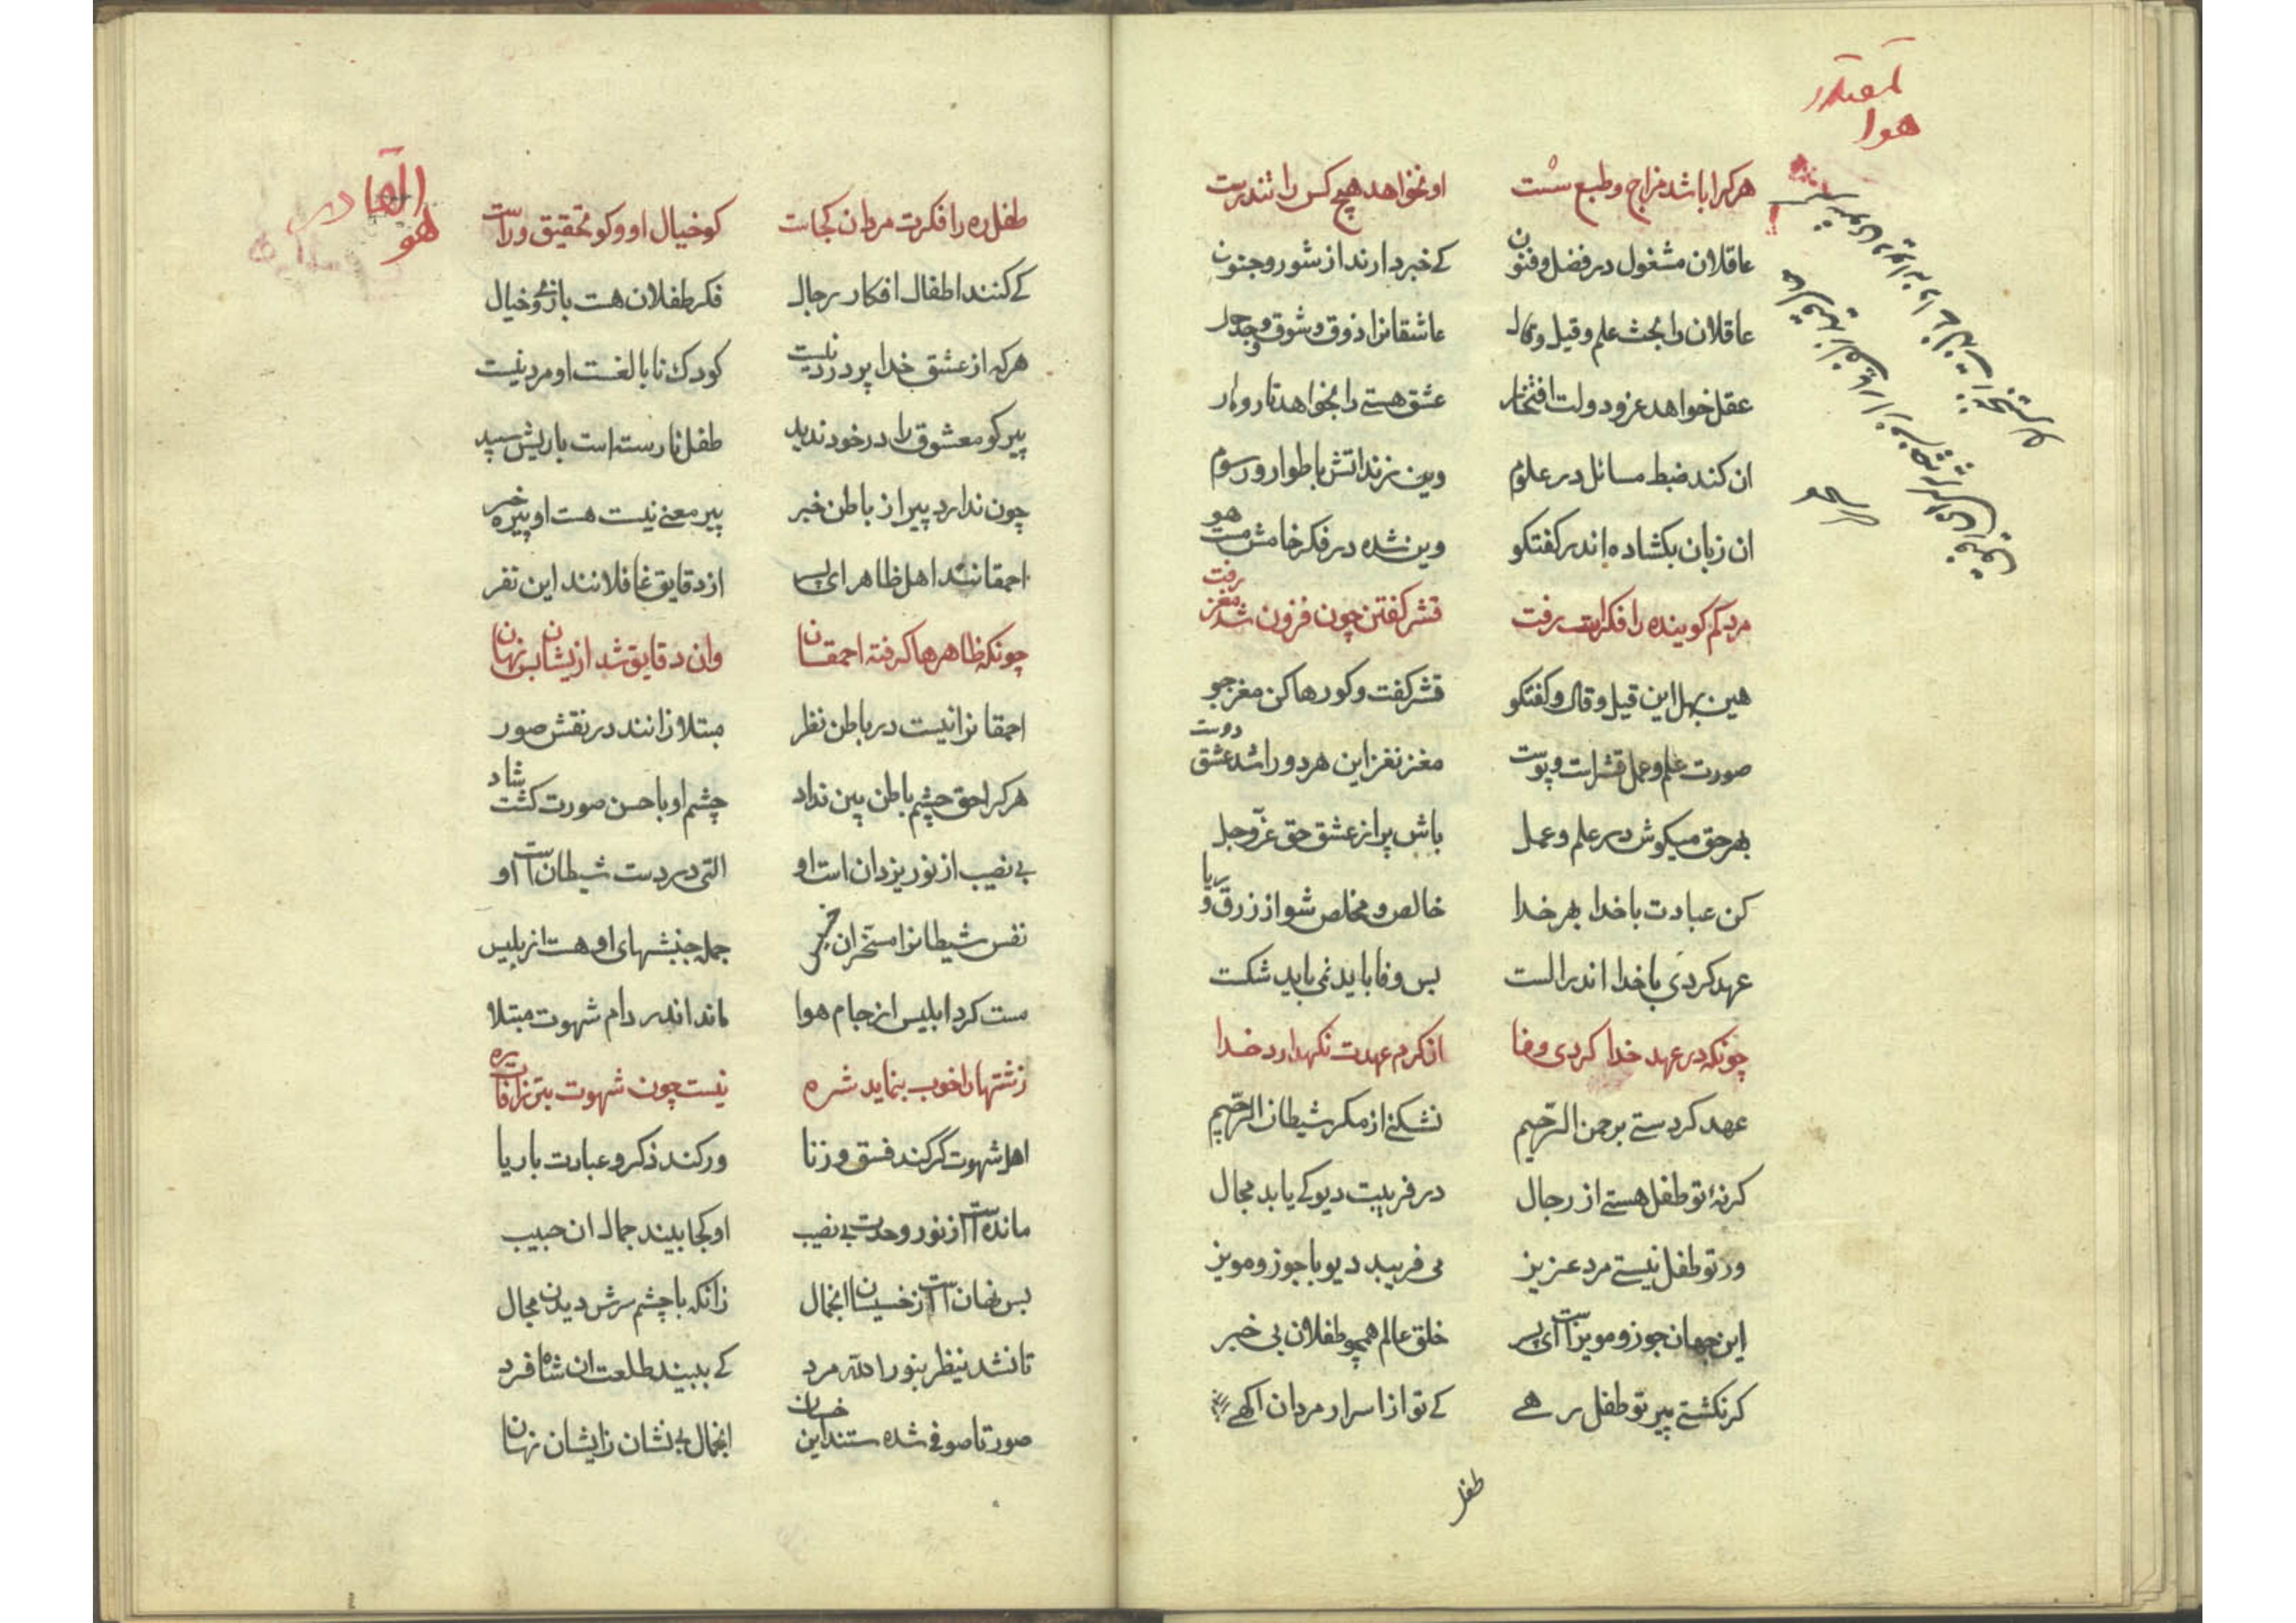 هو المقتدر
هرکرا باشد مزاج و طبع سست او نخواهد هیچ کس را تندرست
عاقلان مشغول در فضل و فنون کے خبر دارند از شور و جنون
عاقلان را بحث علم و قیل و قال عاشقانرا ذوق و شوق و وجد حال
عقل خواهد عز و دولت افتخار عشق هستے را بخواهد تار و مار
ان کند ضبط مسائل در علوم وین زند اتش باطوار و رسوم
ان زبان بکشاده اندر کفتکو وین شده در فکر خامش مست هو
مرد کم کوینده را فکرات رفت قشر کفتن چون فزون شد مغز رفت
هین بهل این قیل و قال و کفتکو قشر کفت و کو رها کن مغز جو
صورت علم و عمل قشر است و پوست مغز نغز این هر دو را شد عشق دوست
بهر حق میکوش در علم و عمل باش پر از عشق حق عزّ و جل
کن عبادت با خدا بهر خدا خالص و مخلص شو از زرق و ریا
عهد کردی با خدا اندر الست بس وفا باید نمی باید شکست
چونکه در عهد خدا کردی وفا از کرم عهدت نکهدارد خدا
عهد کردستے برحمن الرّحیم نشکنے از مکر شیطان الرّجیم
کر نهٔ تو طفل هستے از رجال در فریبت دیو کے یابد مجال
ور تو طفل نیستے مرد عزیز می فریبد دیو با جوز و مویز
این جهان جوز و مویز است ای پسر خلق عالم همچو طفلان بی خبر
کر نکشتے پیر تو طفل رهے کے تو از اسرار مردان اکهے
طفل
هو القادر
طفل ره را فکرت مردان کجاست کو خیال او و کو تحقیق و راست
کے کنند اطفال افکار رجال فکر طفلان هست بازی و خیال
هرکه از عشق خدا پر درد نیست کودک نابالغست او مرد نیست
پیر کو معشوق را در خود ندید طفل نارسته است با ریش سپید
چون ندارد پیر از باطن خبر پیر معنے نیست هست او پیره خر
احمقانند اهل ظاهر ای پسر از دقایق غافلانند این نفر
چونکه ظاهرها کرفته احمقان وان دقایق شد ازیشان بس نهان
احمقانرا نیست در باطن نظر مبتلا زانند در نقش صور
هرکرا حق چشم باطن بین نداد چشم او با حسن صورت کشت شاد
بی نصیب از نور یزدان است او التی در دست شیطان است او
نفس شیطانرا مسخر ان خسیس جمله جنبشهای او هست از بلیس
مست کرد ابلیس از جام هوا ماند اندر دام شهوت مبتلا
زشتها را خوب بنماید شره نیست چون شهوت بتر ز افات ره
اهل شهوت کر کند فسق و زنا ور کند ذکر و عبادت با ریا
مانده است از نور وحدت بی نصیب او کجا بیند جمال ان حبیب
بس نهان است از خسیسان انجمال زانکه با چشم سرش دیدن محال
تا نشد ینظر بنور الله مرد کے ببیند طلعت ان شاه فرد
صورتا صوفی شده ستند این خسان انجمال بی نشان زایشان نهان